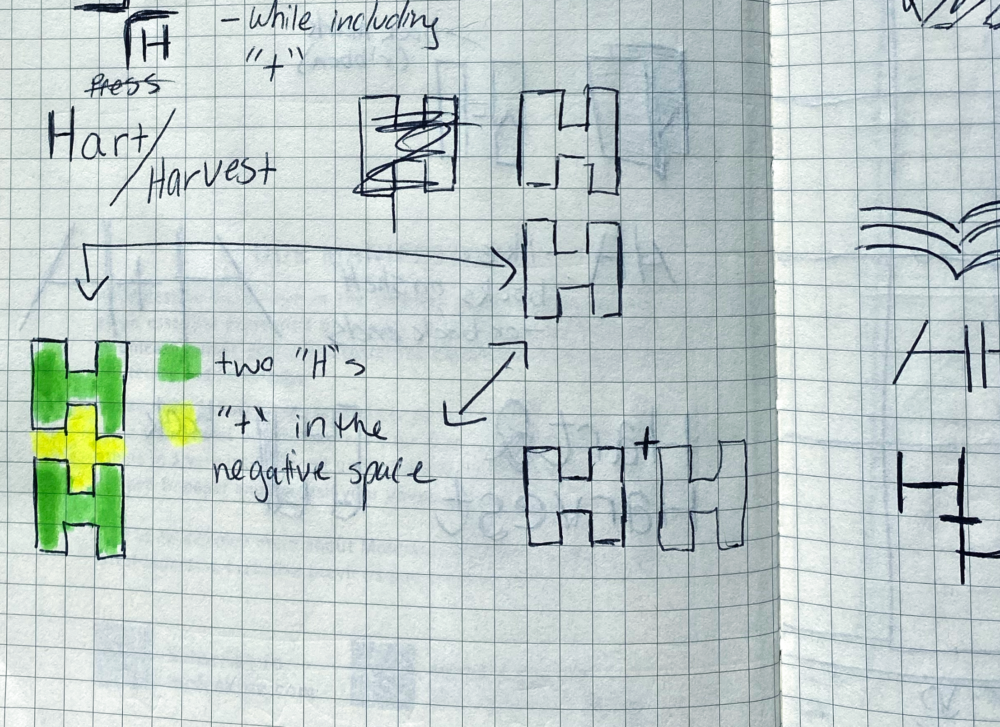 H
- While including
"+"
Press
Hart/
Harvest
H
H
H
H
two "H"s
"+" in the
negative space
H + H